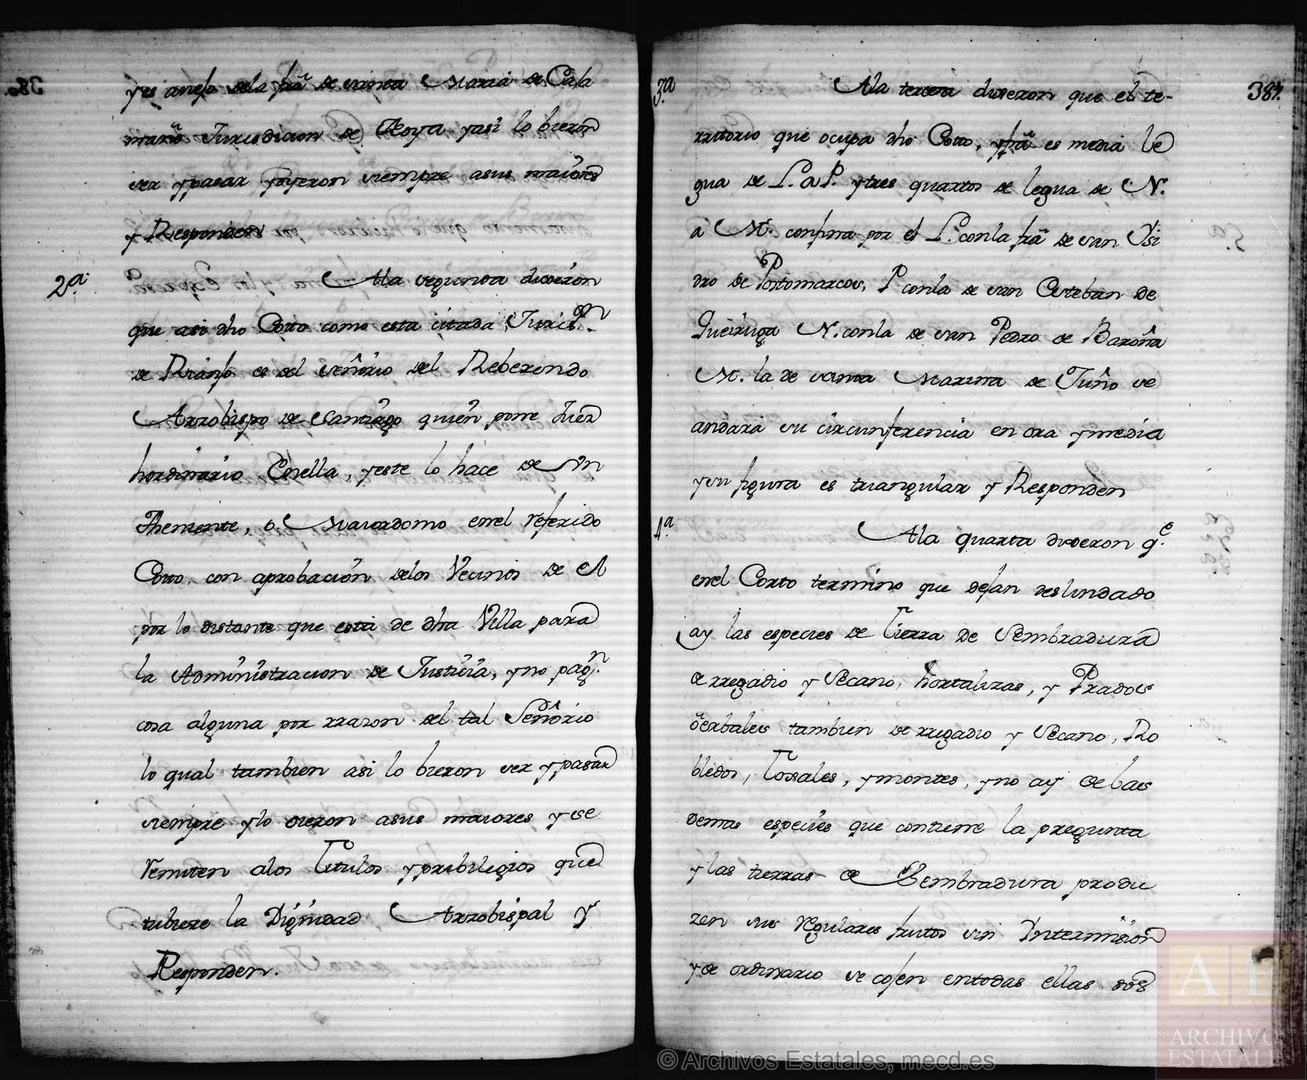 y es anejo dela fra de santa Maria de Cala
maño Jurisdicion de Noya y asi lo bieron
ver y pasar y oyeron siempre asus maiores
y Responden
2.a Ala segunda dixeron
que asi dho Coto como esta citada Jurisn
de Rianjo es del señorio del Reberendo
Arzobispo de Santiago quien pone Juez
hordinario Enella, y este lo hace de Un
Theniente, o Maiordomo enel referido
Coto, con aprobación delos Vecinos de el
por lo distante que esta de dha Villa para
la Administracion de Justicia, y no pagn
cosa alguna por rrazon del tal Señorio
lo qual tambien asi lo bieron ver y pasar
siempre y lo oieron asus maiores y se
remiten alos Titulos y pribilegios que
tubiere la Dignidad Arzobispal y
Responden.
387.
3.a Ala tercera dixeron que el te-
rritorio que ocupa dho Coto, y fra es media le
gua de L. a P. y tres quartos de legua de N.
a M. confina por el L. conla fra de san Ysi
dro de Postomarcos, P conla de san Esteban de
Queiruga N. conla de san Pedro de Baroña
M. la de santa Marina de Juño se
andara su circunferencia en ora y media
y su figura es triangular y Responden
4.a Ala quarta dixeron qe
enel Corto termino que dejan deslindado
ay las especies de Tierra de Sembradura
de rregadio y Secano, hortalizas, y Prados
Yerbales tambien de rregadio y Secano, Ro
bledos, Toxales, y montes, y no ay de las
demas especies que contiene la pregunta
y las tierras de Sembradura produ
zen sus regulares frutos sin Intermision
y de ordinario se cojen entodas ellas dos
© Archivos Estatales, mecd.es
AE
ARCHIVOS
ESTATALES